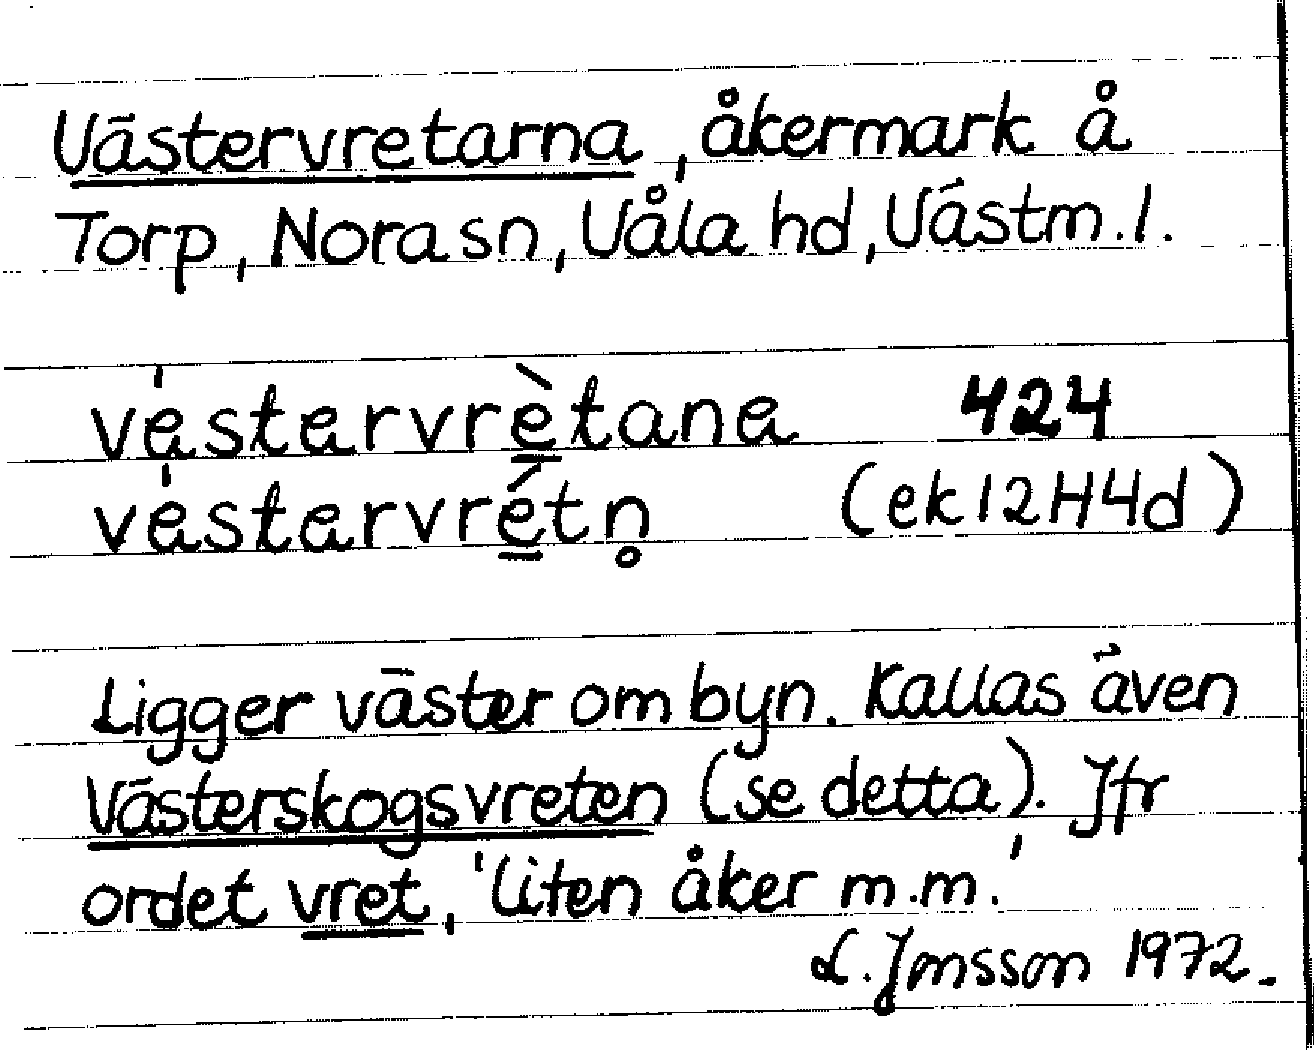 Västervretarna, åkermark å
Torp, Nora sn, Våla hd, Västm.l.
vȧ́stạrvrètana 424
vȧ́stạrvrétn̥ (ek12H4d)
Ligger väster om byn. Kallas även
Västerskogsvreten (se detta). Jfr
ordet vret, 'liten åker m.m.'
L. Jonsson 1972.